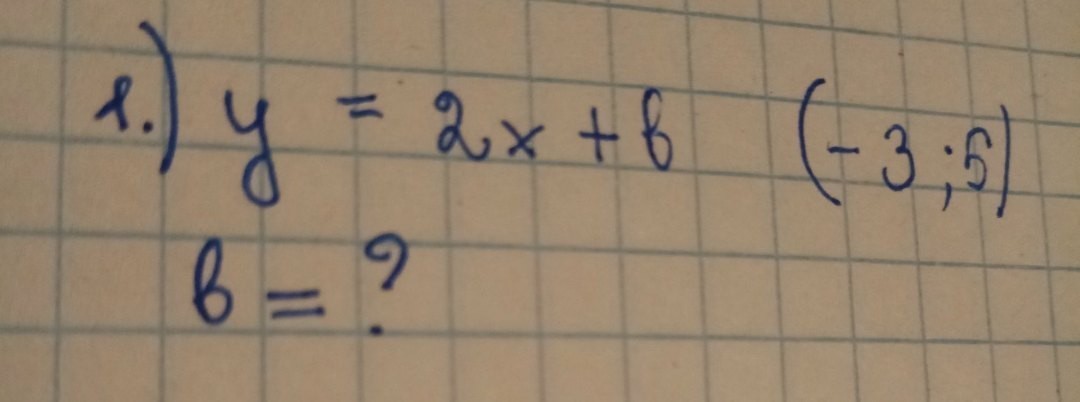 1.) y = 2x + b (-3;5)
b = ?